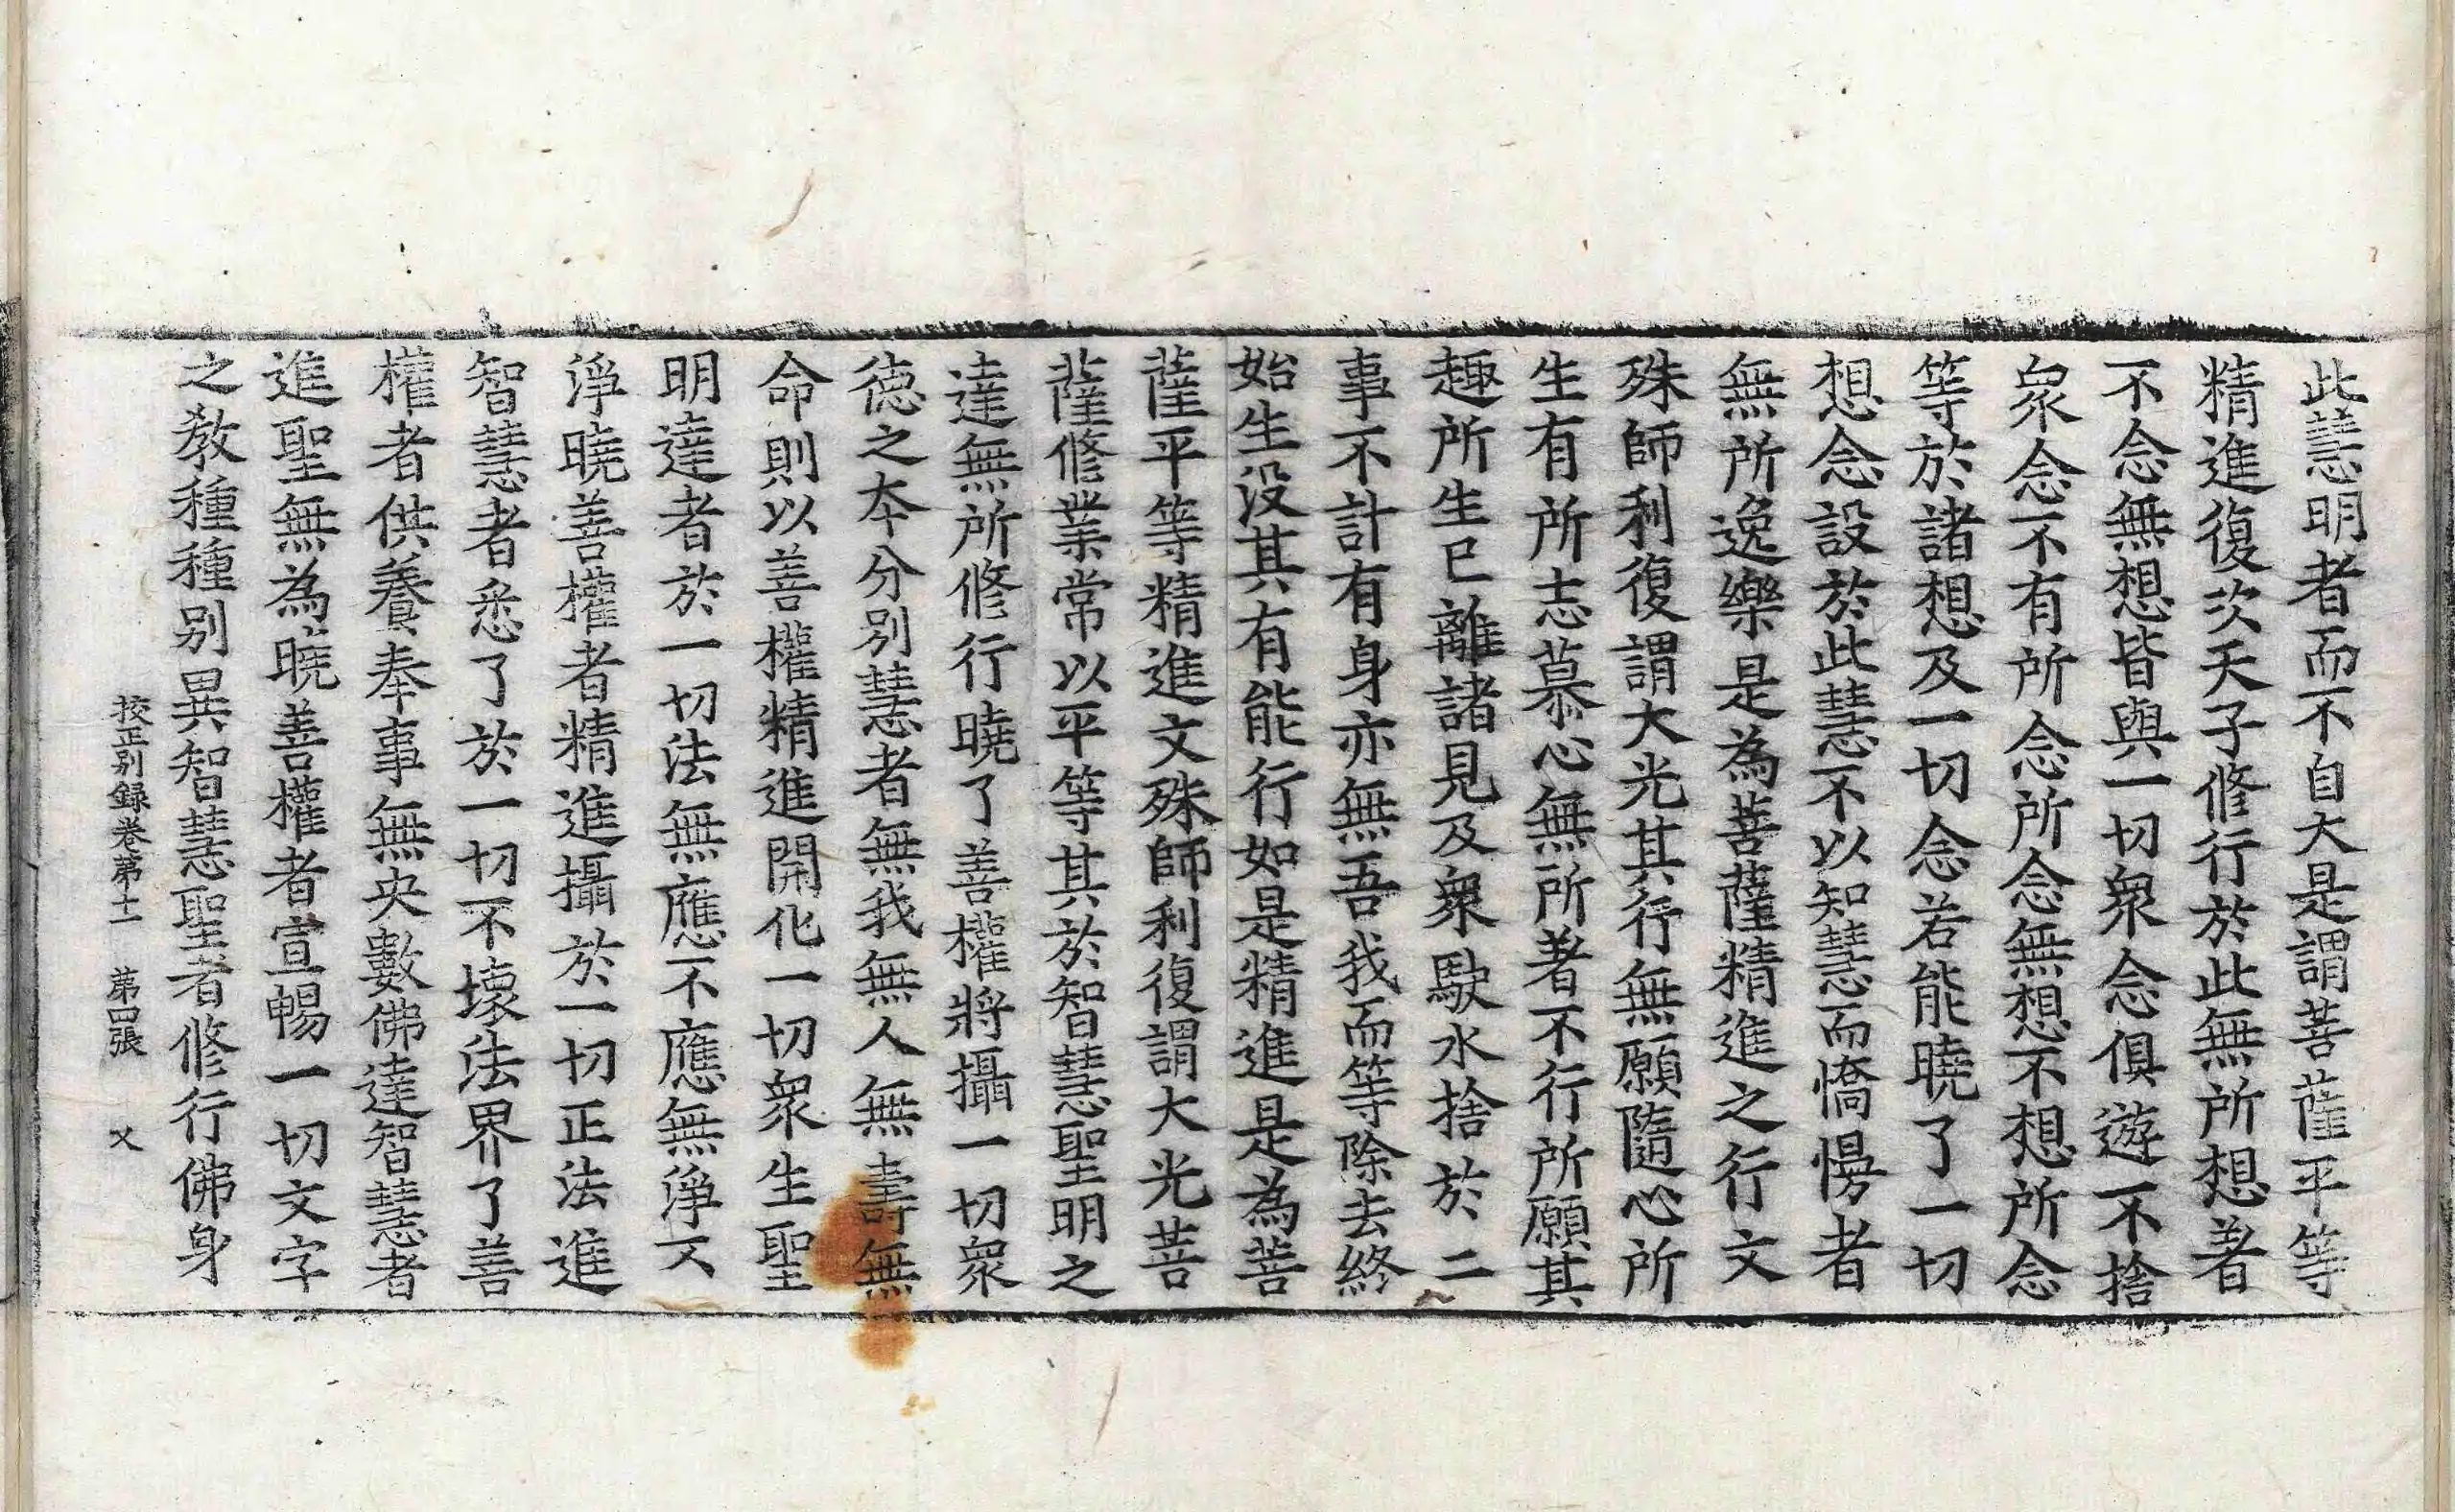 此慧明者而不自大是謂菩薩平等
精進復次天子修行於此無所想著
不念無想皆與一切衆念俱遊不捨
衆念不有所念所念無想不想所念
等於諸想及一切念若能曉了一切
想念設於此慧不以知慧而憍慢者
無所逸樂是為菩薩精進之行文
殊師利復謂大光其行無願隨心所
生有所志慕心無所著不行所願其
趣所生已離諸見及衆駛水捨於二
事不計有身亦無吾我而等除去終
始生没其有能行如是精進是為菩
薩平等精進文殊師利復謂大光菩
薩修業常以平等其於智慧聖明之
達無所修行曉了善權將攝一切衆
德之本分别慧者無我無人無壽無
命則以善權精進開化一切衆生聖
明達者於一切法無應不應無淨不
淨曉善權者精進攝於一切正法進
智慧者悉了於一切不壞法界了善
權者供養奉事無央數佛達智慧者
進聖無為曉善權者宣暢一切文字
之教種種别異智慧聖者修行佛身
校正别録卷苐十一 苐四張 乂